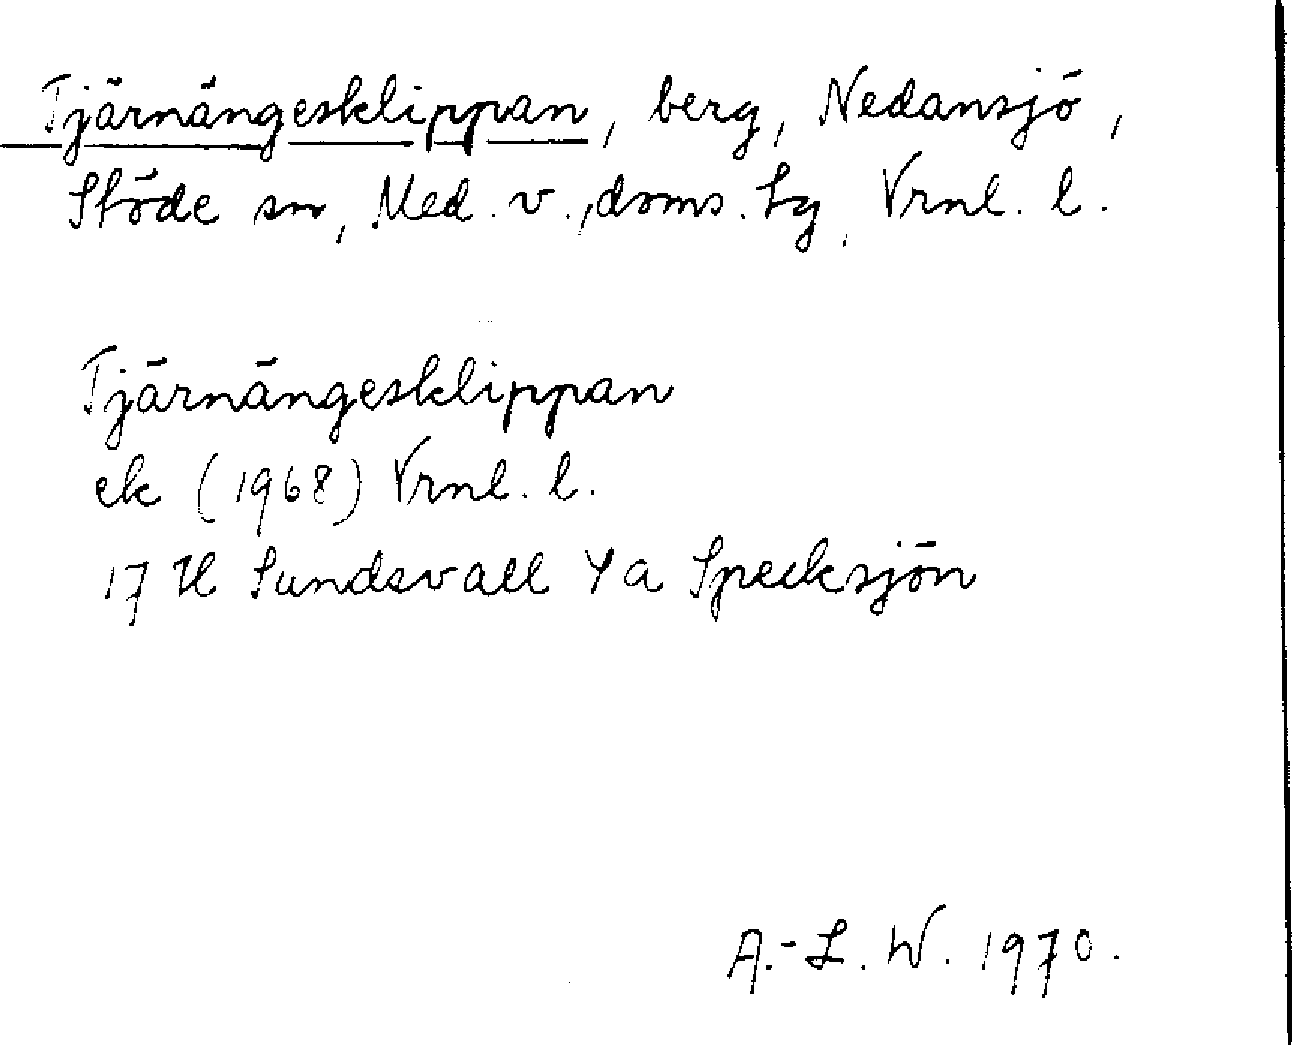 Tjärnängesklippan, berg, Nedansjö,
Stöde sn, Med. v., doms. tg, Vrnl. l.
Tjärnängesklippan
ek (1968) Vrnl. l.
17 H Sundsvall 4 a Specksjön
A.-L. W. 1970.